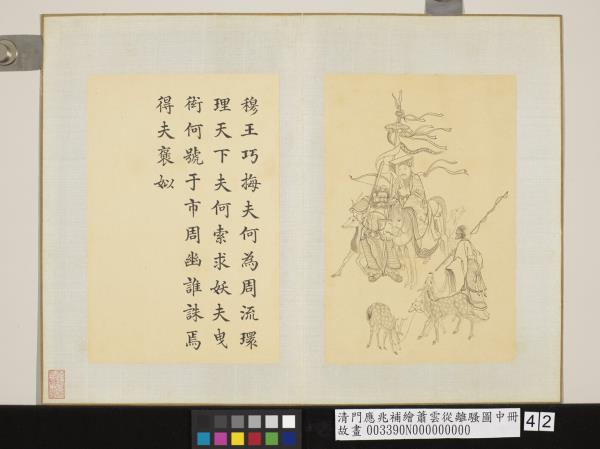 穆王巧梅夫何為周流環
理天下夫何索求妖夫曳
衒何號于市周幽誰誅焉
得夫襃姒
清門應兆補繪蕭雲從離騷圖中冊
故畫003390N000000000
42